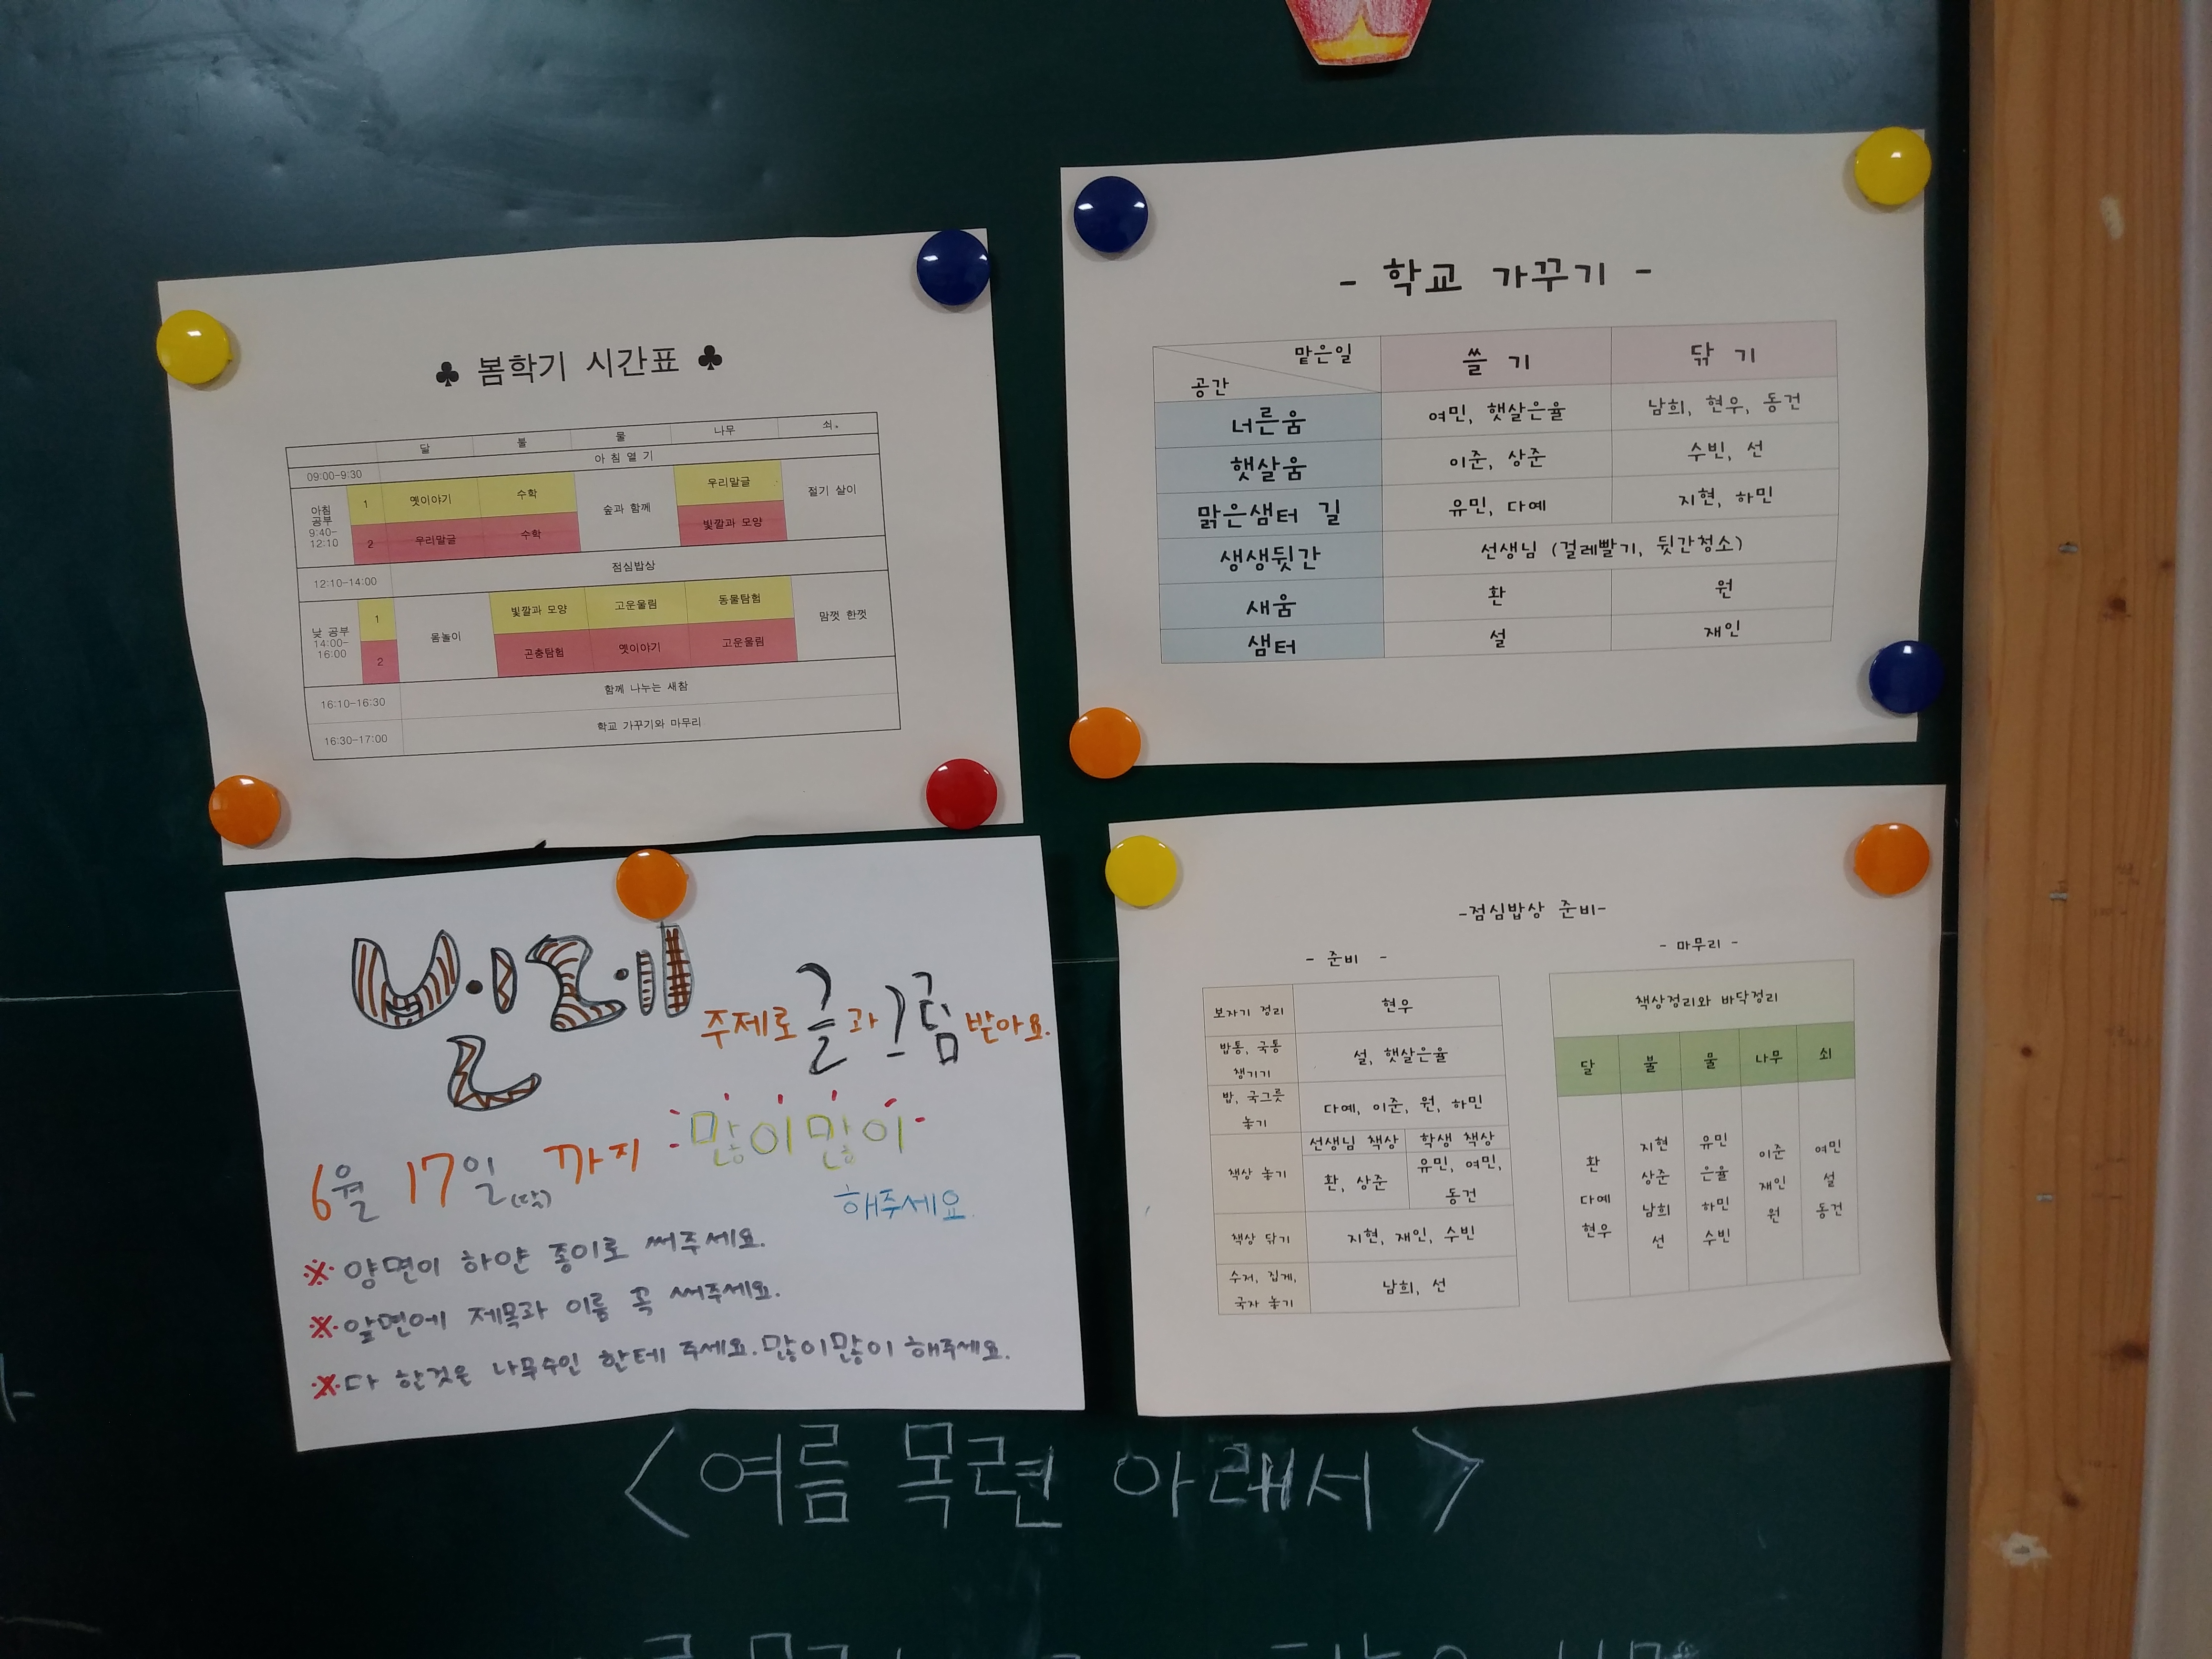 ♣ 봄학기 시간표 ♣
달 불 물 나무 쇠.
09:00-9:30 아 침 열 기
아침 공부 9:40-12:10
1 옛이야기 수학 숲과 함께 우리말글 절기 살이
2 우리말글 수학 빛깔과 모양
12:10-14:00 점심밥상
낮 공부 14:00-16:00
1 몸놀이 빛깔과 모양 고운울림 동물탐험 맘껏 한껏
2 곤충탐험 옛이야기 고운울림
16:10-16:30 함께 나누는 새참
16:30-17:00 학교 가꾸기와 마무리
- 학교 가꾸기 -
맡은일
공간
쓸 기 닦 기
너른움 여민, 햇살은율 남희, 현우, 동건
햇살움 이준, 상준 수빈, 선
맑은샘터 길 유민, 다예 지현, 하민
생생뒷간 선생님 (걸레빨기, 뒷간청소)
새움 환 원
샘터 설 재인
주제로 글과 그림 받아요.
많이많이
6월 17일 까지
해주세요.
※ 양면이 하얀 종이로 써주세요.
※ 앞면에 제목과 이름 꼭 써주세요.
※ 다 한것은 나무수인 한테 주세요. 많이많이 해주세요.
-점심밥상 준비-
- 준비 -
보자기 정리 현우
밥통, 국통 챙기기 설, 햇살은율
밥, 국그릇 놓기 다예, 이준, 원, 하민
책상 놓기
선생님 책상 학생 책상
환, 상준 유민, 여민, 동건
책상 닦기 지현, 재인, 수빈
수저, 집게, 국자 놓기 남희, 선
- 마무리 -
책상정리와 바닥정리
달 불 물 나무 쇠
환 지현 유민 이준 여민
다예 상준 은율 재인 설
현우 남희 하민 원 동건
선 수빈
<여름 목련 아래서>